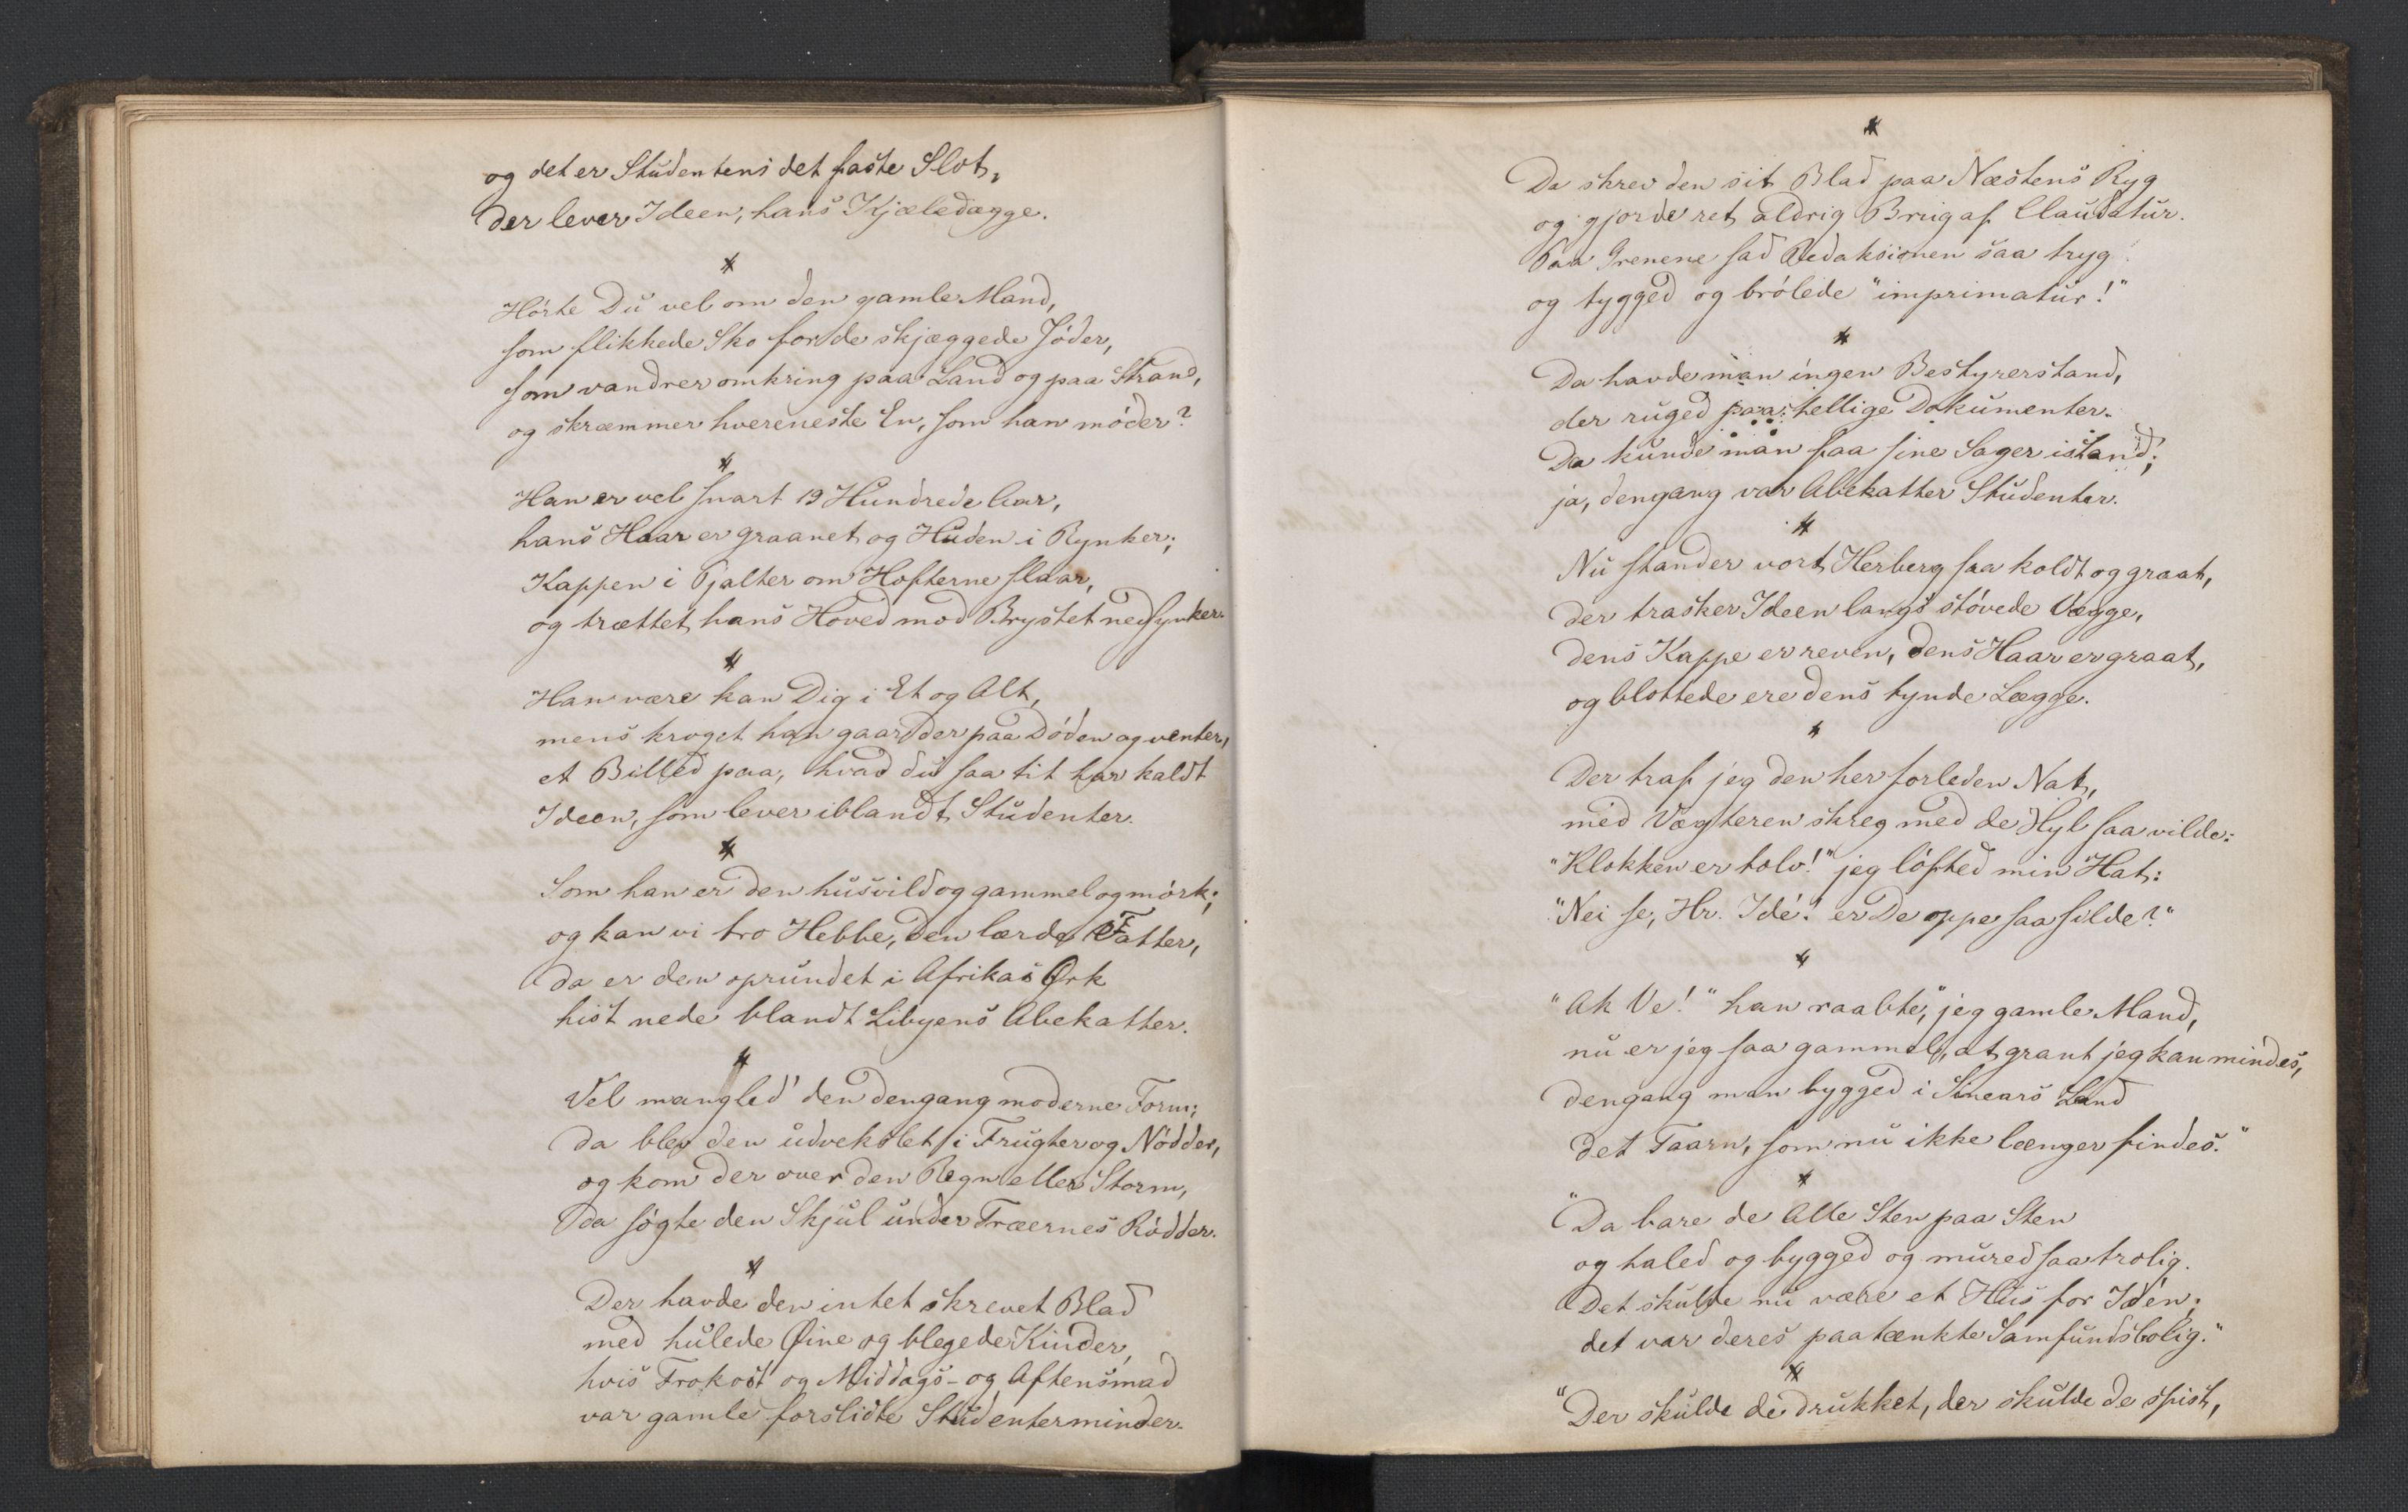 og det er Studentens det faste Slot,
der lever Ideen, hans Kjæledægge.
*
Hørte Du vel om den gamle Mand,
som flikkede Sko for de skjæggede Jøder,
som vandrer omkring paa Land og paa Strand,
og skræmmer hvereneste En, som han møder?
*
Han er vel snart 19 Hundrede Aar,
hans Haar er graanet og Huden i Rynker;
Kappen i Pjalter om Hofterne slaar,
og trættet hans Hoved mod Brystet nedsynker.
*
Han være kan Dig i Et og Alt,
mens kroget han gaar der paa Døden og venter,
et Billed paa, hvad du saa tit har kaldt
Ideen, som lever iblandt Studenter.
*
Som han er den husvild og gammel og mørk;
og kan vi tro Hebbe, den lærde Fatter,
da er den oprundet i Afrikas Ørk
hist nede blandt Libyens Abekatter.
*
Vel mangled' den dengang moderne Form;
da blev den udvekslet i Frugter og Nødder,
og kom der over den Regn eller Storm,
da søgte den Skjul under Træernes Rødder.
*
Der havde den intet skrevet Blad
med hulede Øine og blegede Kinder,
hvis Frokost og Middags- og Aftensmad
var gamle forslidte Studenterminder.
*
Da skrev den sit Blad paa Næstens Ryg
og gjorde ret aldrig Brug af Claudatur.
Paa Grenene sad Redaksionen saa tryg
og tygged og brølede "imprimatur!"
*
Da havde man ingen Bestyrerstand,
der ruged paa hellige Dokumenter.
Da kunde man faa sine Sager istand;
ja, dengang var Abekatter Studenter.
*
Nu stander vort Herberg saa koldt og graat,
der trasker Ideen langs støvede Vægge,
dens Kappe er reven, dens Haar er graat,
og blottede ere dens tynde Lægge.
*
Der traf jeg den her forleden Nat,
med Vægteren skreg med de Hyl saa vilde:
"Klokken er tolv!" jeg løfted min Hat:
"Nei se, Hr. Idé! er De oppe saa silde?"
*
"Ak Ve!" han raabte, "jeg gamle Mand,
nu er jeg saa gammel, at grant jeg kan mindes,
dengang man bygged i Sinears Land
det Taarn, som nu ikke længer findes."
*
"Da bare de Alle Sten paa Sten
og haled og bygged og mured saa trolig.
Det skulde nu være et Hus for Idéen;
det var deres paatænkte Samfundsbolig."
*
"Der skulde de drukket, der skulde de spist,